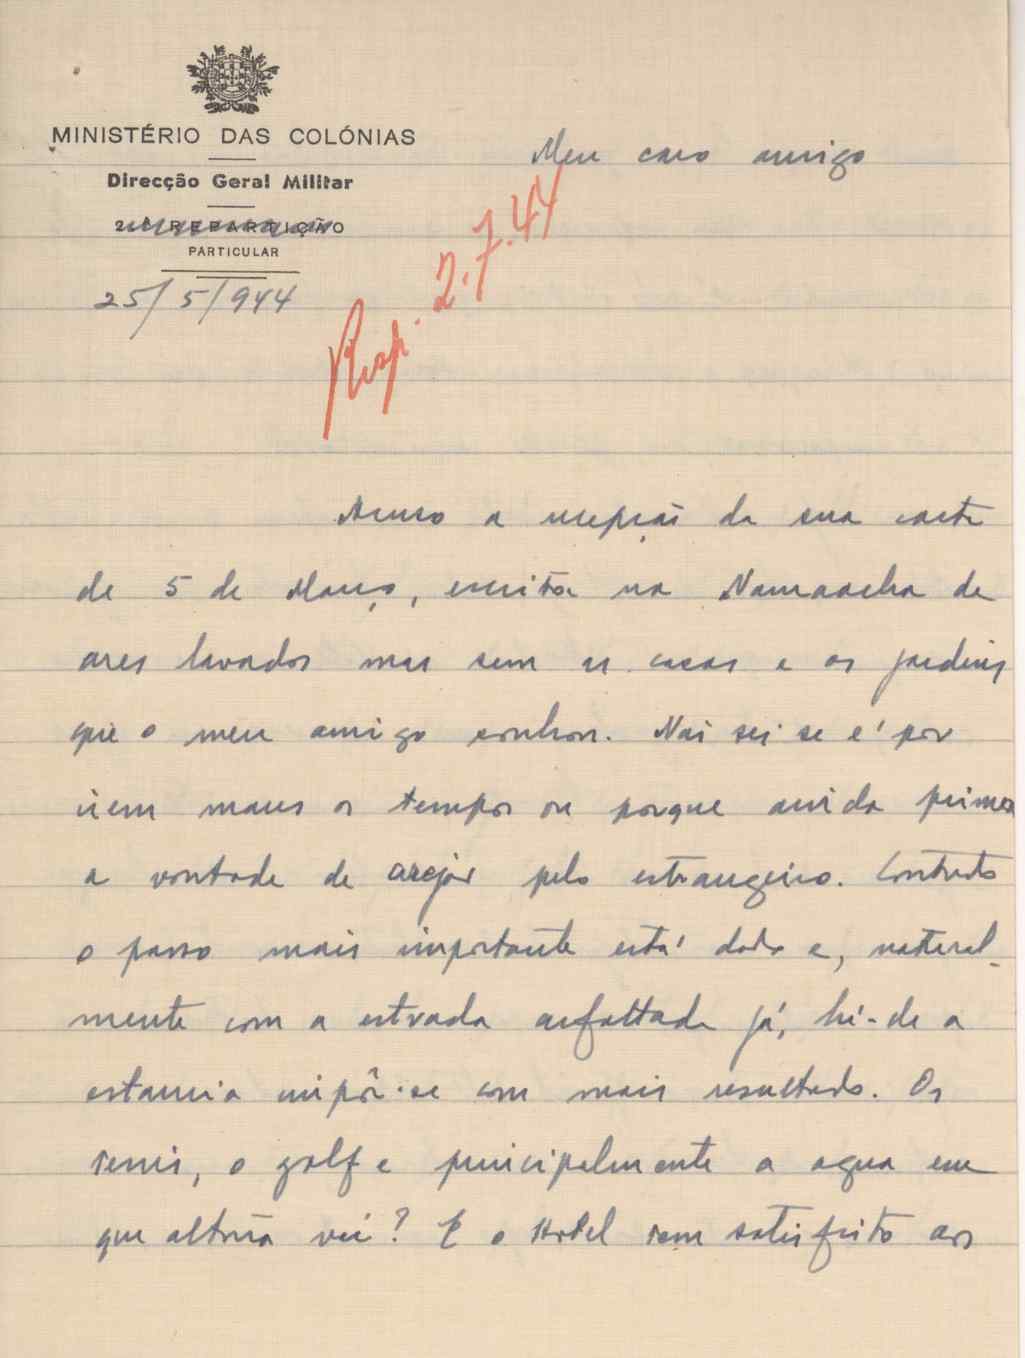 MINISTÉRIO DAS COLÓNIAS
Direcção Geral Militar
2.ª REPARTIÇÃO
PARTICULAR
25/5/944
Meu caro amigo
Resp. 2.7.44
Acuso a recepção da sua carta
de 5 de Março, escrita na Namaacha de
ares lavados mas sem as casas e os jardins
que o meu amigo sonhou. Não sei se é por
irem maus os tempos ou porque ainda prima
a vontade de arejar pelo estrangeiro. Contudo
o passo mais importante está dado e, natural-
mente com a estrada asfaltada já, há-de a
estancia impôr-se com mais resultado. Os
tenis, o golf e principalmente a agua em
que altura vai? E o Hotel tem satisfeito aos